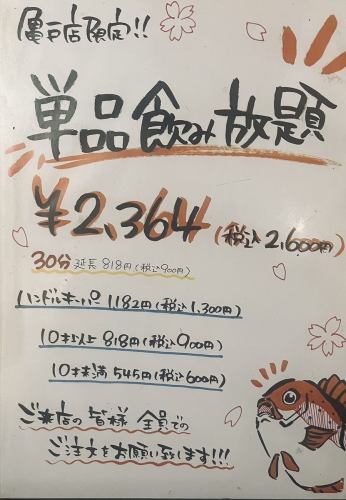 亀戸店限定!!
単品飲み放題
¥2,364(税込2,600円)
30分延長 818円(税込900円)
ハンドルキーパー 1182円(税込1,300円)
10才以上 818円(税込900円)
10才未満 545円(税込600円)
ご来店の皆様 全員での
ご注文をお願い致します!!!